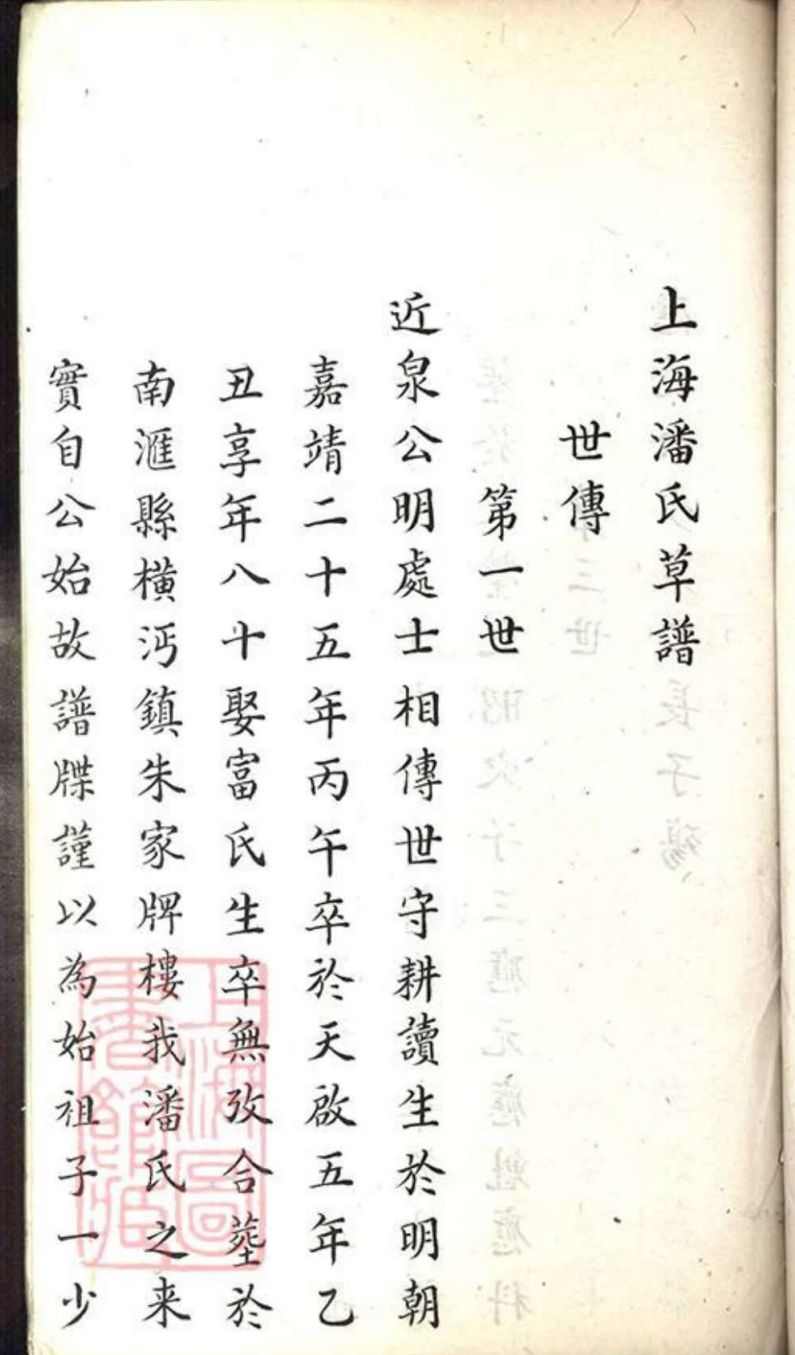 上海潘氏草譜
世傳
第一世
近泉公明處士相傳世守耕讀生於明朝
嘉靖二十五年丙午卒於天啟五年乙
丑享年八十娶富氏生卒無攷合塟於
南滙縣橫沔鎮朱家牌樓我潘氏之来
實自公始故譜牒謹以為始祖子一少
上海圖書館藏